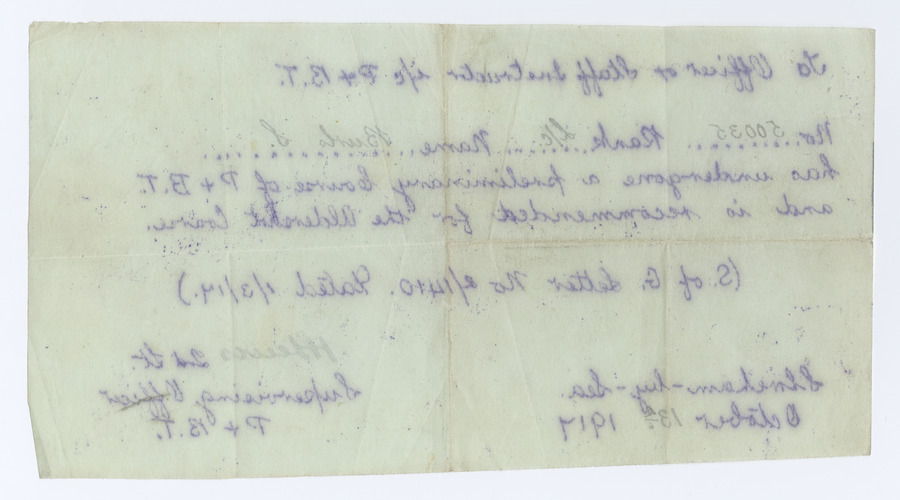 To Officer or Staff Instructor i/c P + B.T.
No. 50035 Rank L/c Name Burke S.
has undergone a preliminary Course of P + B.T.
and is recommended for the Aldershot Course.
(S. of G. Letter No 2/1410. Dated 1/3/17.)
2nd Lt.
Shoreham-by-Sea
Supervising Officer
October 13th 1917
P + B.T.